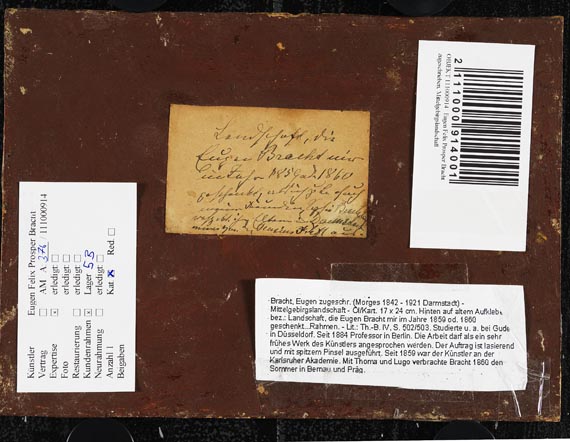 Landschaft, die
Eugen Bracht mir
im Jahr 1859 od. 1860
geschenkt
2 111000 914001
OBJEKT 111000914 Eugen Felix Prosper Bracht
zugeschrieben. Mittelgebirgslandschaft
Künstler Eugen Felix Prosper Bracht
Vertrag AM A 376 111000914
Expertise x erledigt
Foto erledigt
Restaurierung erledigt
Kundenrahmen x Lager 5B
Neurahmung erledigt
Anzahl 1 Kat x Red
Beigaben
Bracht, Eugen zugeschr. (Morges 1842 - 1921 Darmstadt) -
Mittelgebirgslandschaft - Öl/Kart. 17 x 24 cm. Hinten auf altem Aufkleb
bez.: Landschaft, die Eugen Bracht mir im Jahre 1859 od. 1860
geschenkt...Rahmen. - Lit.: Th.-B. IV, S. 502/503. Studierte u. a. bei Gude
in Düsseldorf. Seit 1884 Professor in Berlin. Die Arbeit darf als ein sehr
frühes Werk des Künstlers angesprochen werden. Der Auftrag ist lasierend
und mit spitzem Pinsel ausgeführt. Seit 1859 war der Künstler an der
Karlsruher Akademie. Mit Thoma und Lugo verbrachte Bracht 1860 den
Sommer in Bernau und Präg.